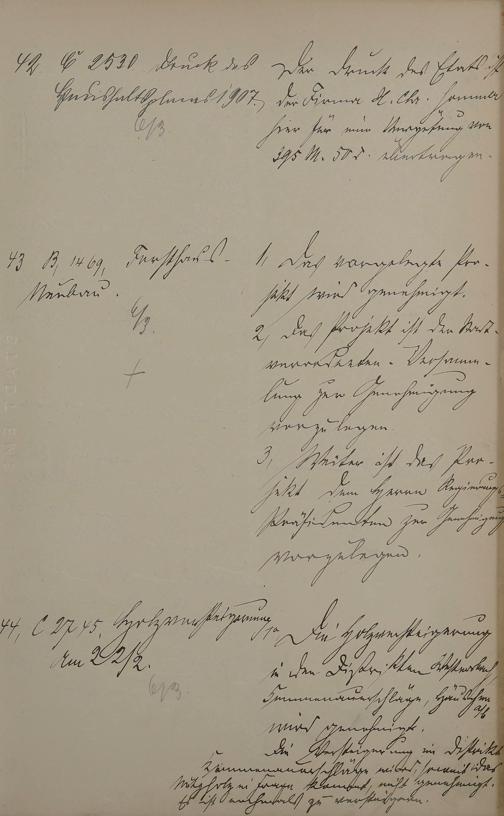 42 C 2530 Druck des
Haushaltsplans 1907.
6/3
Der Druck des Etats ist
der Firma H. Chr. Sommer
hier für eine Vergütung von
395 M. 50 d. übertragen.
43 B, 1469, Forsthaus-
Neubau.
6/3.
1, Das vorgelegte Pro-
jekt wird genehmigt.
2, Das Projekt ist der Stadt-
verordneten-Versamm-
lung zur Genehmigung
vorzulegen.
3, Weiter ist das Pro-
jekt dem Herrn Regierungs-
Präsidenten zur Genehmigung
vorzulegen.
44, C 2745, Holzversteigerung
am 22/2.
6/3.
Die Holzversteigerung
in den Distrikten
wird genehmigt.
Die Versteigerung im Distrikt
wird, soweit das
Nutzholz in Frage kommt, nicht genehmigt.
Es ist nochmals zu versteigern.